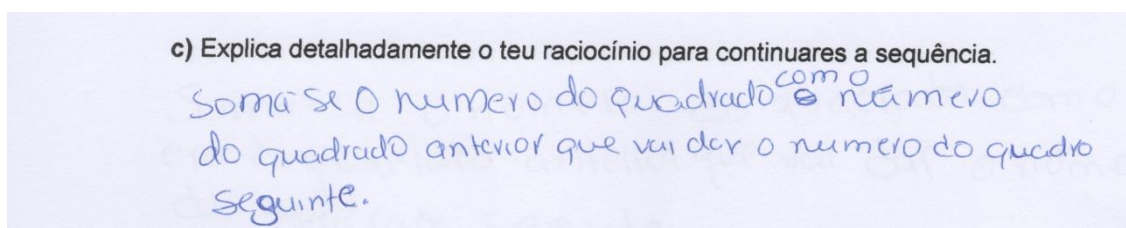 c) Explica detalhadamente o teu raciocínio para continuares a sequência.
Soma se o numero do quadrado com o número
do quadrado anterior que vai dar o numero do quadro
seguinte.